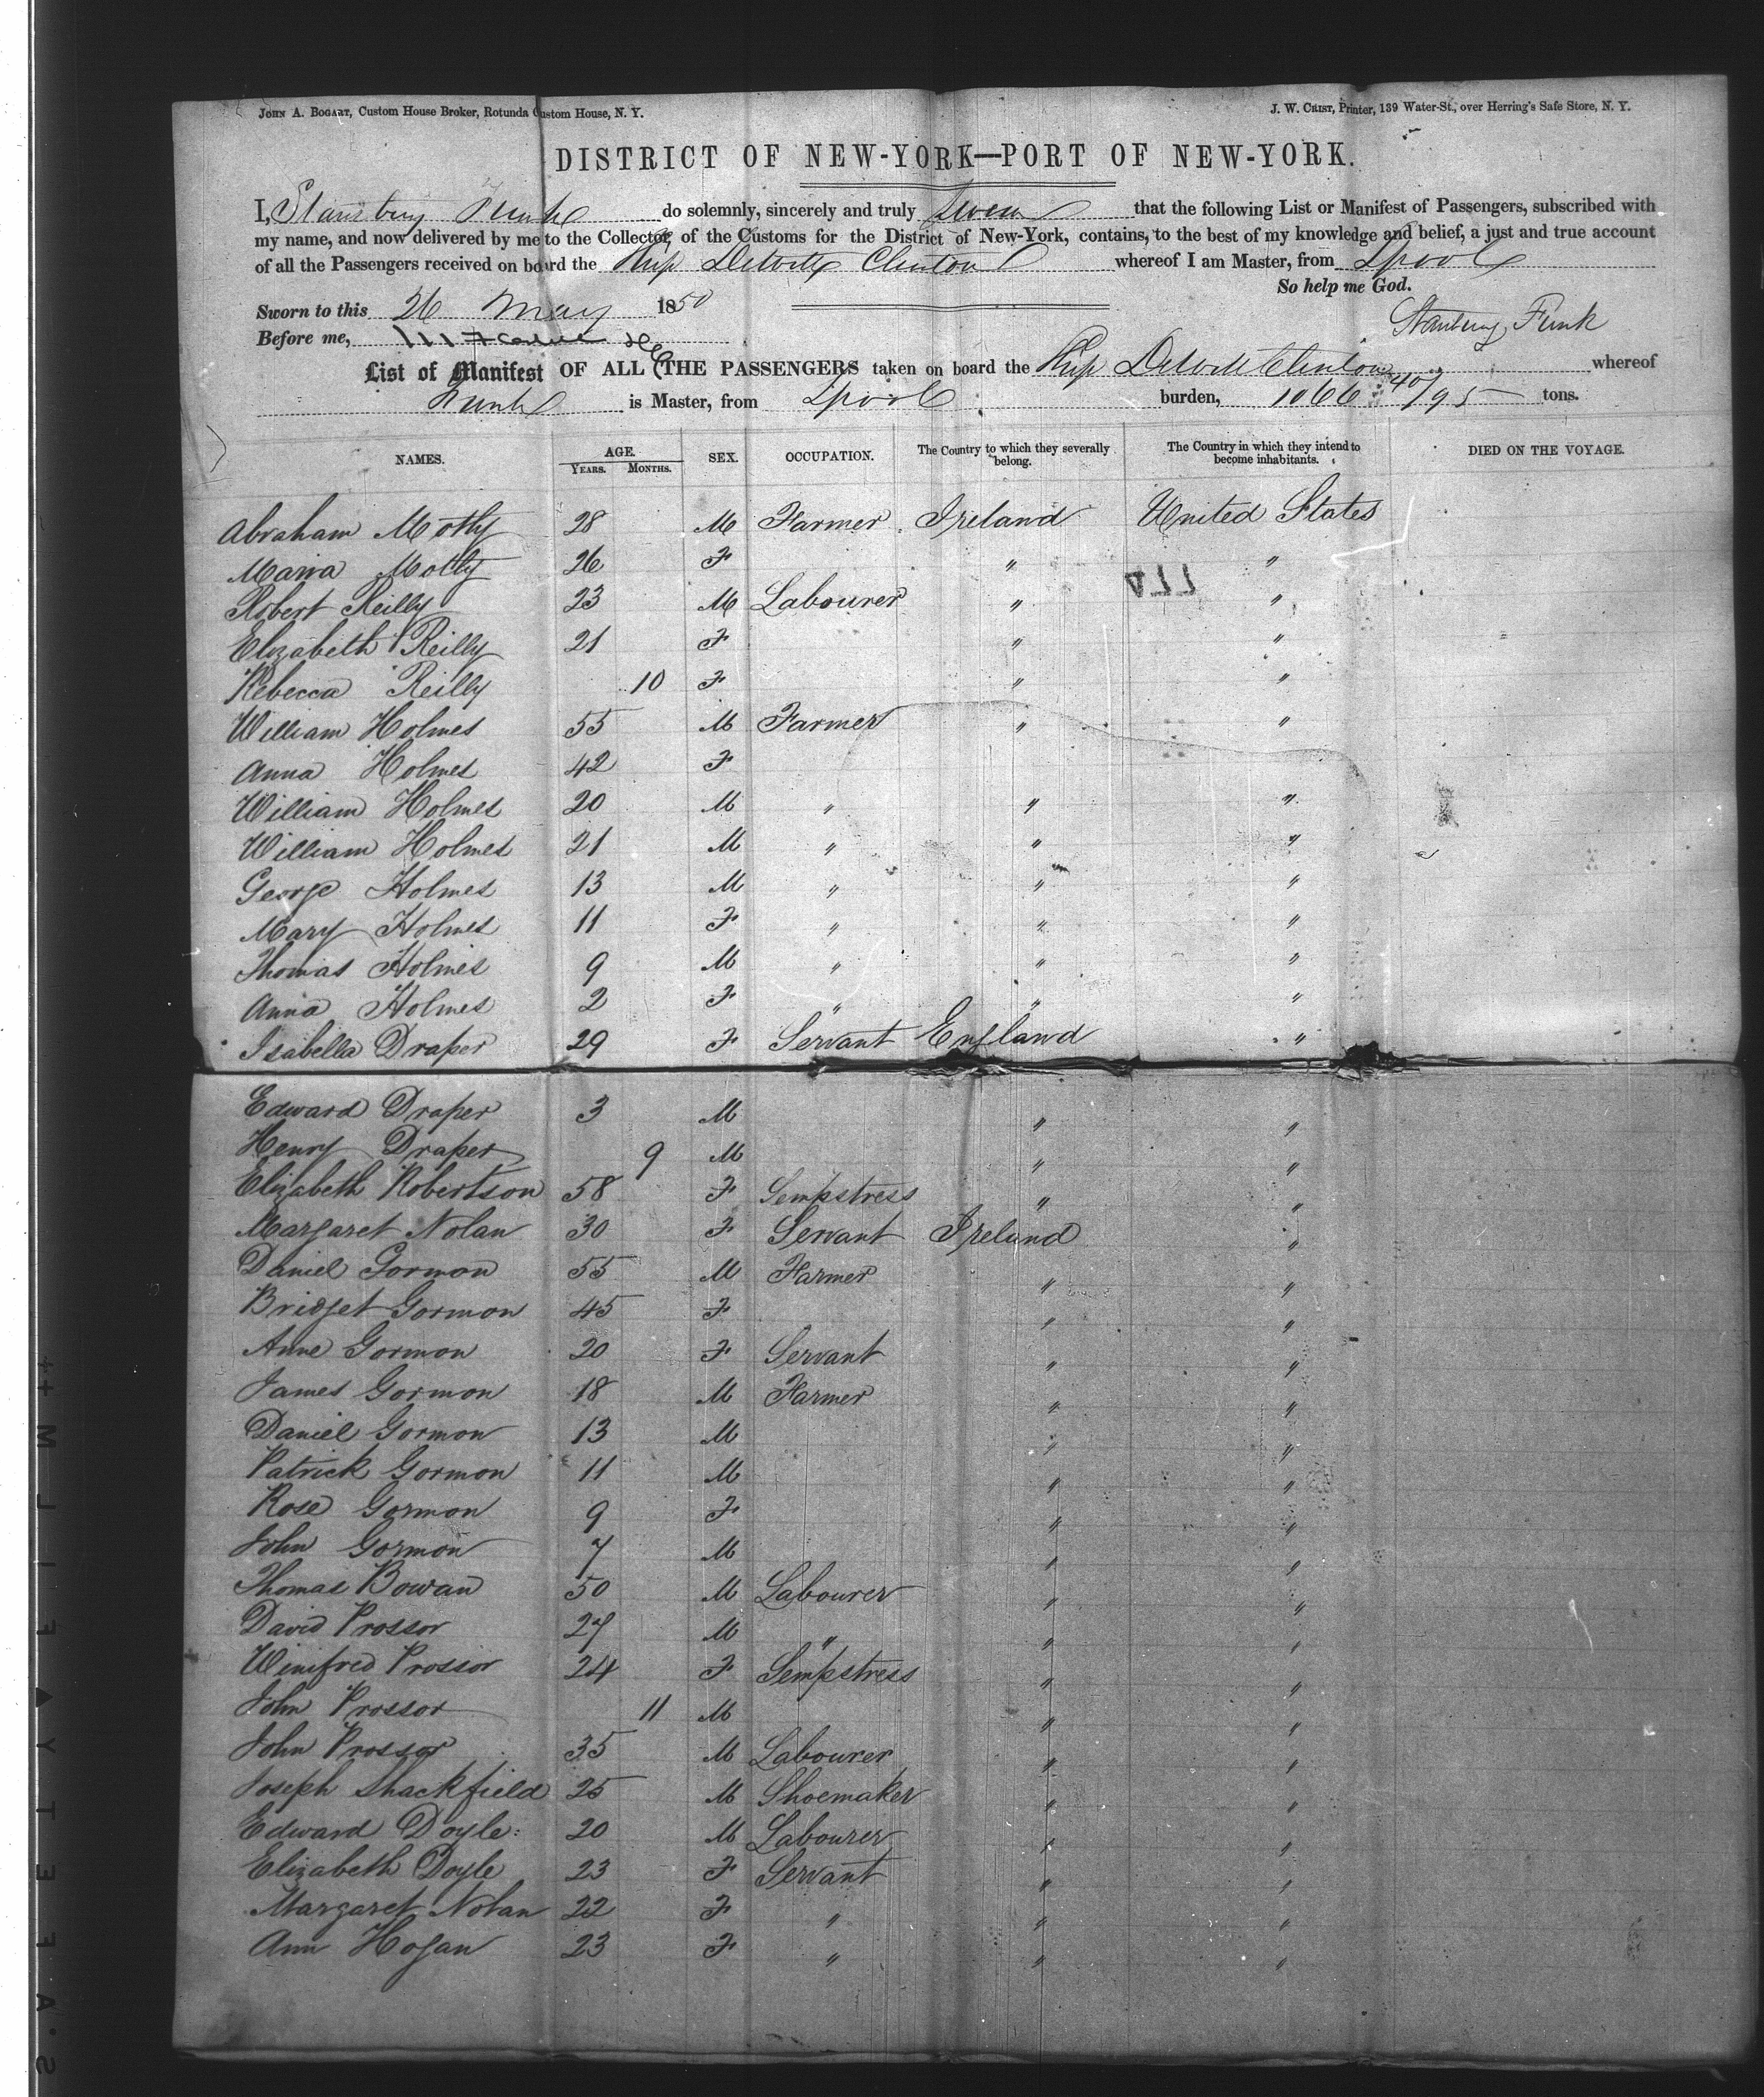 JOHN A. BOGART, Custom House Broker, Rotunda Custom House, N. Y.
J. W. CRIST, Printer, 139 Water-St., over Herring's Safe Store, N. Y.
DISTRICT OF NEW-YORK—PORT OF NEW-YORK.
I, Stansbury Funk do solemnly, sincerely and truly swear that the following List or Manifest of Passengers, subscribed with
my name, and now delivered by me to the Collector of the Customs for the District of New-York, contains, to the best of my knowledge and belief, a just and true account
of all the Passengers received on board the Ship Dewitt Clinton whereof I am Master, from Lpool
So help me God.
Sworn to this 26 May 1850
Stansbury Funk
Before me,
List of Manifest OF ALL THE PASSENGERS taken on board the Ship Dewitt Clinton whereof
Funk is Master, from Lpool burden, 1066 40/95 tons.
NAMES. AGE. SEX. OCCUPATION. The Country to which they severally belong. The Country in which they intend to become inhabitants. DIED ON THE VOYAGE.
YEARS. MONTHS.
Abraham Motty 28 M Farmer Ireland United States
Maria Motty 26 F " "
Robert Reilly 23 M Labourer " "
Elizabeth Reilly 21 F " "
Rebecca Reilly 10 F " "
William Holmes 55 M Farmer " "
Anna Holmes 42 F
William Holmes 20 M " " "
William Holmes 21 M " " "
George Holmes 13 M " " "
Mary Holmes 11 F " " "
Thomas Holmes 9 M " " "
Anna Holmes 2 F " " "
Isabella Draper 29 F Servant England "
Edward Draper 3 M " "
Henry Draper 9 M " "
Elizabeth Robertson 58 F Sempstress " "
Margaret Nolan 30 F Servant Ireland "
Daniel Gormon 55 M Farmer " "
Bridget Gormon 45 F " "
Anne Gormon 20 F Servant " "
James Gormon 18 M Farmer " "
Daniel Gormon 13 M " "
Patrick Gormon 11 M " "
Rose Gormon 9 F " "
John Gormon 7 M " "
Thomas Bowan 50 M Labourer " "
David Prossor 27 M " " "
Winifred Prossor 24 F Sempstress " "
John Prossor 11 M " "
John Prossor 35 M Labourer " "
Joseph Shackfield 25 M Shoemaker " "
Edward Doyle 20 M Labourer " "
Elizabeth Doyle 23 F Servant " "
Margaret Nolan 22 F " " "
Ann Hogan 23 F " " "